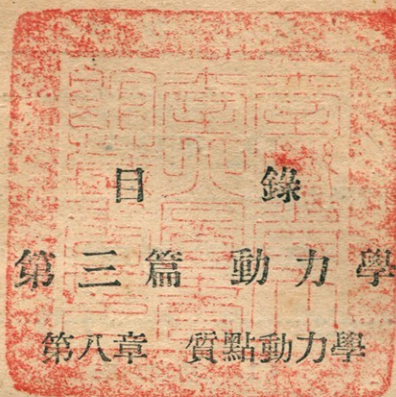 目錄
第三篇 動力學
第八章 質點動力學